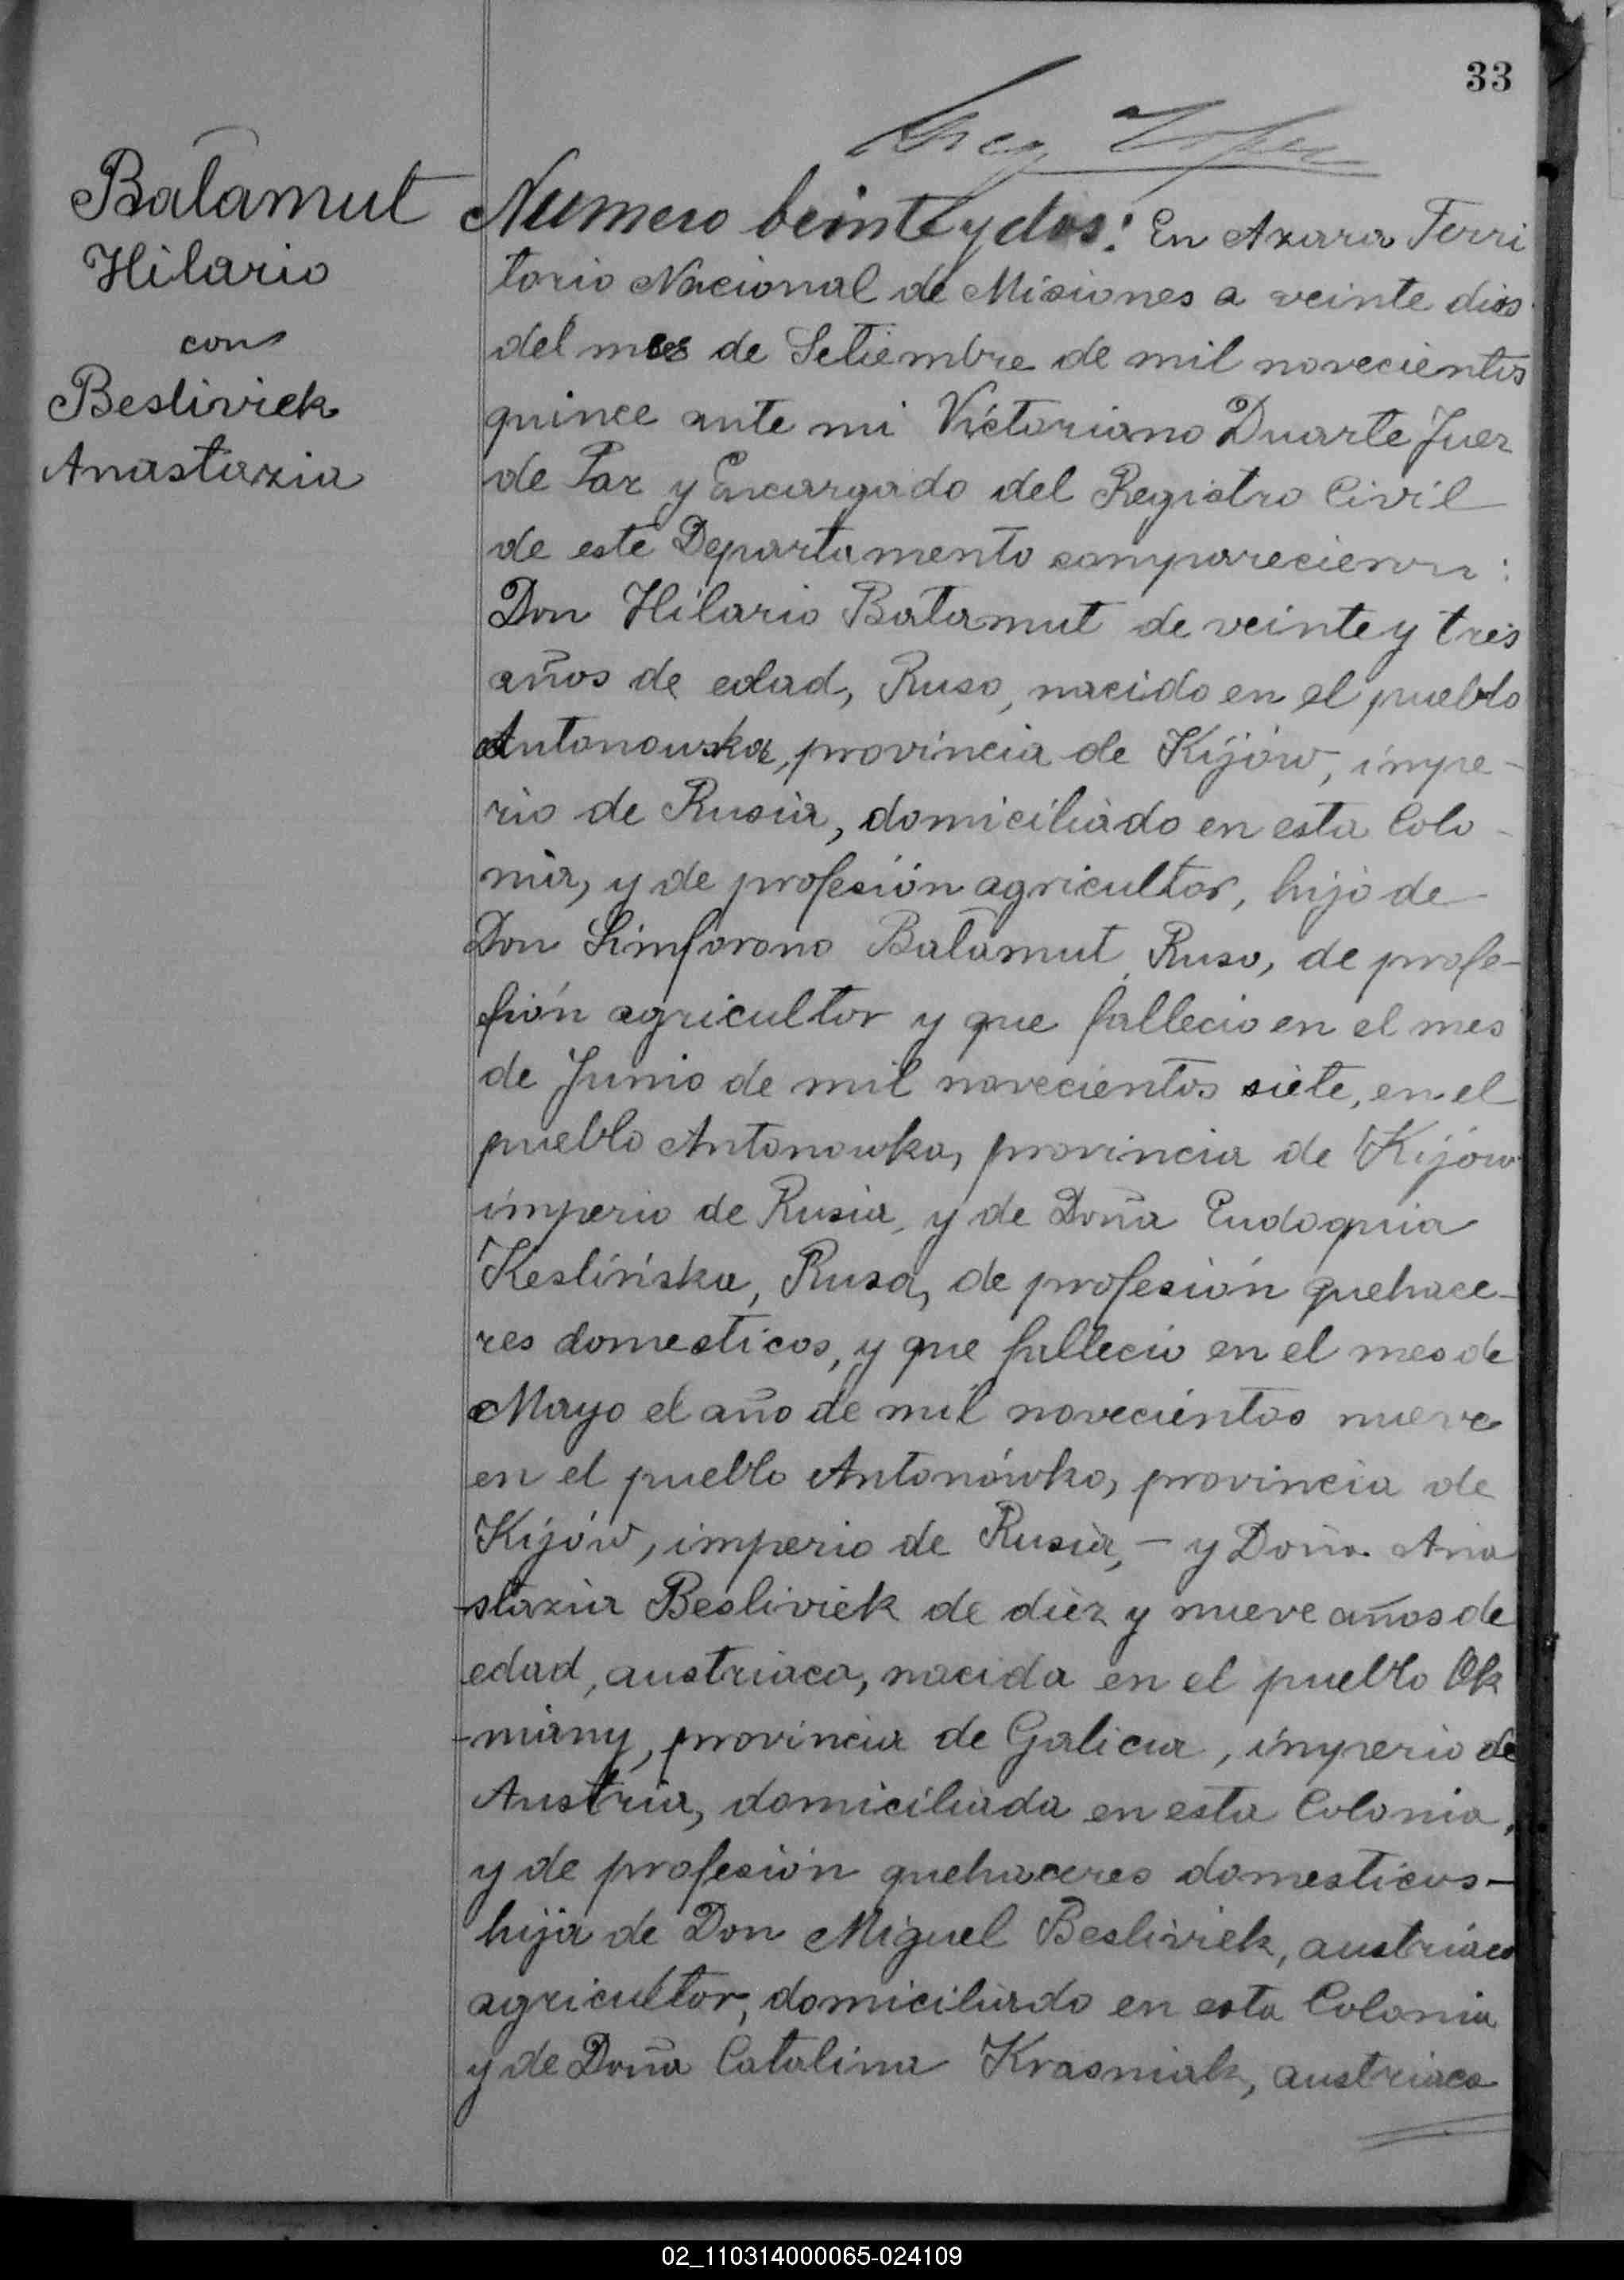 33
Balamut
Hilario
con
Besliviek
Anastazia
Numero beinte y dos: En Azara Terri
torio Nacional de Misiones a veinte dias
del mes de Setiembre de mil novecientos
quince ante mi Victoriano Duarte Juez
de Paz y Encargado del Registro Civil
de este Departamento comparecieron:
Don Hilario Batamut de veinte y tres
años de edad, Ruso, nacido en el pueblo
Antonowska, provincia de Kijów, impe-
rio de Rusia, domiciliado en esta Colo-
nia, y de profesión agricultor, hijo de
Don Simforono Balamut, Ruso, de profe-
sión agricultor y que fallecio en el mes
de Junio de mil novecientos siete, en el
pueblo Antonowka, provincia de Kijów
imperio de Rusia, y de Doña Eudoquia
Keslińska, Rusa, de profesión quehace-
res domesticos, y que fallecio en el mes de
Mayo el año de mil novecientos nueve
en el pueblo Antonówka, provincia de
Kijów, imperio de Rusia, - y Doña Ana
-stazia Besliviek de diez y nueve años de
edad, austriaca, nacida en el pueblo Ok
-niany, provincia de Galicia, imperio de
Austria, domiciliada en esta Colonia,
y de profesión quehaceres domesticos-
hija de Don Miguel Besliviek, austriaco
agricultor, domiciliado en esta Colonia
y de Doña Catalina Krasniak, austriaca
02_110314000065-024109